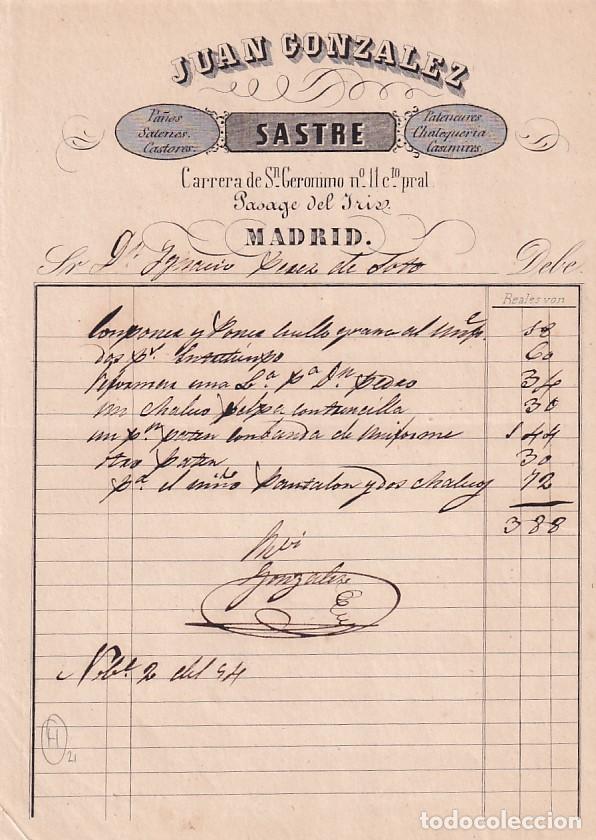 JUAN GONZALEZ
Paños
Satenes.
Castores.
SASTRE
Patencures.
Chalequeria
Casimires.
Carrera de Sn. Geronimo nº. 11 cto. pral.
Pasage del Iris.
MADRID.
Sr Dn. Ygnacio Perez de Soto Debe
Reales von
Componer y Poner cuello grana al Unife. 18
dos pn. Entretiempo 60
Reformar una La. pa Dn. Pedro 34
un chaleco felpa con trencilla 30
un pn. paten con banda de uniforme 144
otro Paten 30
pa. el niño Pantalon y dos chalecos 72
388
Rebi
Gonzalez
Nobe. 2 del 54
H
21
todocoleccion